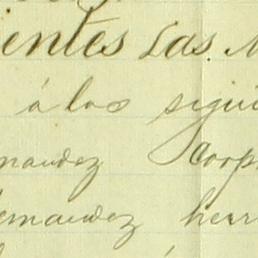 ientes las M
á los sigui
nandez Corp
ernandez herr